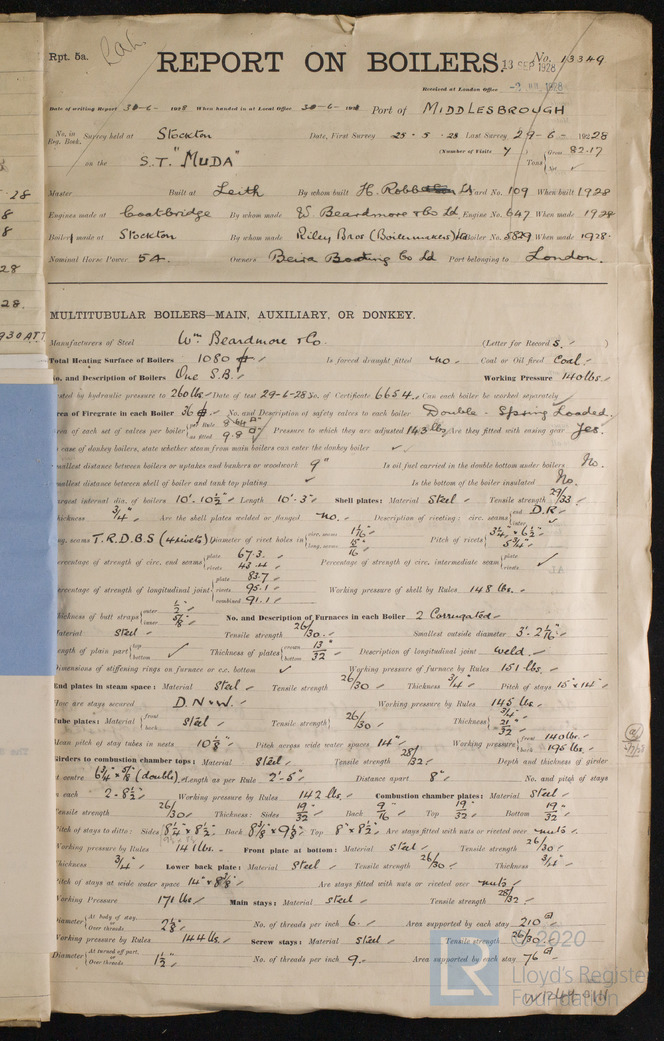 Rpt. 5a.
REPORT ON BOILERS.
No. 13349
13 SEP 1928
Received at London Office
Date of writing Report 30-6- 1928 When handed in at Local Office 30-6- 1928 Port of MIDDLESBROUGH
No. in Reg. Book. Survey held at Stockton Date, First Survey 25-5-28 Last Survey 29-6- 1928
(Number of Visits 7 )
on the S.T. "MUDA" Tons { Gross 82.17 Net
Master Built at Leith By whom built Yard No. 109 When built 1928
Engines made at Coatbridge By whom made W. Beardmore & Co Ld Engine No. 647 When made 1928
Boiler made at Stockton By whom made Riley Bros (Boilermakers) Ld Boiler No. 5829 When made 1928.
Nominal Horse Power 54. Owners Beira Boating Co Ld Port belonging to London.
MULTITUBULAR BOILERS—MAIN, AUXILIARY, OR DONKEY.
Manufacturers of Steel Wm Beardmore & Co. (Letter for Record S. )
Total Heating Surface of Boilers 1080 Is forced draught fitted no. Coal or Oil fired Coal.
No. and Description of Boilers One S.B. Working Pressure 140 lbs.
tested by hydraulic pressure to 260 lbs Date of test 29-6-28 No. of Certificate 6654. Can each boiler be worked separately
Area of Firegrate in each Boiler 36 No. and Description of safety valves to each boiler Double - Spring Loaded.
Area of each set of valves per boiler { per Rule as fitted 9.8 Pressure to which they are adjusted 143 lbs Are they fitted with easing gear Yes.
In case of donkey boilers, state whether steam from main boilers can enter the donkey boiler
Smallest distance between boilers or uptakes and bunkers or woodwork 9" Is oil fuel carried in the double bottom under boilers No.
Smallest distance between shell of boiler and tank top plating Is the bottom of the boiler insulated No.
Largest internal dia. of boilers 10'-10½" Length 10'-3" Shell plates: Material Steel Tensile strength 29/33
Thickness 3/4" Are the shell plates welded or flanged no. Description of riveting: circ. seams { end D.R inter
long. seams T.R.D.B.S (4 rivets) Diameter of rivet holes in { circ. seams 1 1/16 long. seams 15/16 Pitch of rivets { 3¼" 6½" 5¾"
Percentage of strength of circ. end seams { plate 67.3 rivets 43.4 Percentage of strength of circ. intermediate seam { plate rivets
Percentage of strength of longitudinal joint { plate 83.7 rivets 95.1 combined 91.1 Working pressure of shell by Rules 148 lbs.
Thickness of butt straps { outer 1/2 inner 5/8 No. and Description of Furnaces in each Boiler 2 Corrugated
Material steel Tensile strength 26/30 Smallest outside diameter
Length of plain part { top bottom Thickness of plates { crown bottom 13/32 Description of longitudinal joint weld.
Dimensions of stiffening rings on furnace or c.c. bottom Working pressure of furnace by Rules 151 lbs.
End plates in steam space: Material Steel Tensile strength 26/30 Thickness 3/4" Pitch of stays 15" x 14"
How are stays secured D.N & W. Working pressure by Rules 145 lbs.
Tube plates: Material { front back steel Tensile strength 26/30 Thickness { 3/4" 21/32
Mean pitch of stay tubes in nests 10 1/8 Pitch across wide water spaces 14" Working pressure { front 140 lbs. back 195 lbs.
Girders to combustion chamber tops: Material Steel Tensile strength 28/32 Depth and thickness of girder
at centre 6¾" x 5/8 (double) Length as per Rule 2'-5" Distance apart 8" No. and pitch of stays
in each 2-8½" Working pressure by Rules 142 lbs. Combustion chamber plates: Material Steel
Tensile strength 26/30 Thickness: Sides 19/32 Back 9/16 Top 19/32 Bottom 19/32
Pitch of stays to ditto: Sides 8¼" x 8½" Back 8 1/8" x 9 1/8 Top 8" x 8½" Are stays fitted with nuts or riveted over nuts.
Working pressure by Rules 141 lbs. Front plate at bottom: Material Steel Tensile strength 26/30
Thickness 3/4" Lower back plate: Material Steel Tensile strength 26/30 Thickness 3/4"
Pitch of stays at wide water space Are stays fitted with nuts or riveted over nuts
Working Pressure 171 lbs Main stays: Material steel Tensile strength 28/32
Diameter { At body of stay, or Over threads 2 1/8" No. of threads per inch 6. Area supported by each stay 210
Working pressure by Rules 144 lbs. Screw stays: Material steel Tensile strength 26/30.
Diameter { At turned off part, or Over threads 1½" No. of threads per inch 9. Area supported by each stay 76
LR
© 2020
Lloyd's Register
Foundation